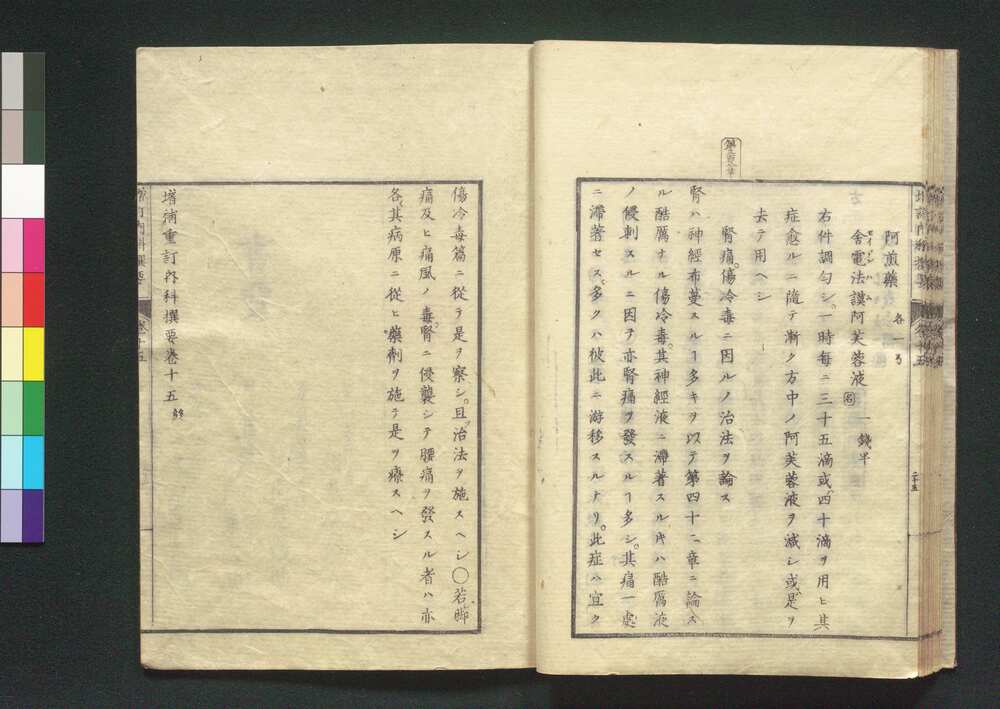 阿煎藥 各一ゟ
舍電法謨阿芙蓉液 名 一錢半
右件調勻シ。一時毎ニ三十五滴或四十滴ヲ用ヒ其
症愈ルニ隨テ漸ク方中ノ阿芙蓉液ヲ減シ或是ヲ
去テ用ヘシ
腎痛。傷冷毒ニ因ルノ治法ヲ論ス
腎ハ神經布蔓スルヿ多キヲ以テ第四十二章ニ論ス
ル酷厲ナル傷冷毒。其神經液ニ滯著スル𪜈ハ酷厲液
ノ侵刺スルニ因テ亦腎痛ヲ發スルヿ多シ。其痛一處
ニ滯著セス。多クハ彼此ニ游移スルナリ。此症ハ宜ク
二十五
傷冷毒篇ニ從テ是ヲ察シ。且治法ヲ施スヘシ〇若脚
痛及ヒ痛風ノ毒。腎ニ侵襲シテ腰痛ヲ發スル者ハ亦
各其病原ニ從ヒ藥劑ヲ施テ是ヲ療スヘシ
增補重訂内科撰要卷十五 終